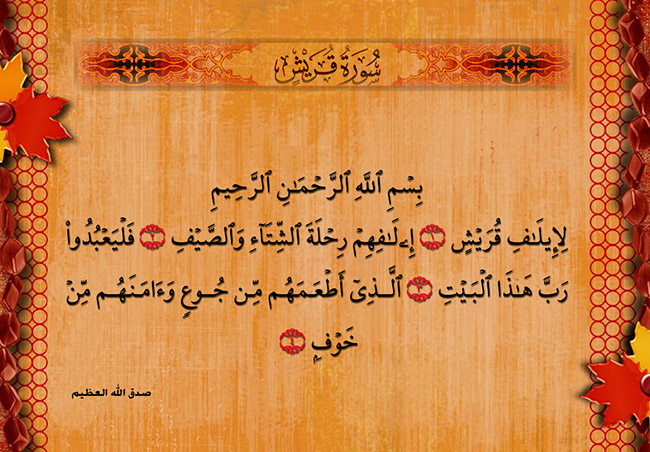 سُورَةُ قُرَيْشٍ
بِسْمِ ٱللَّهِ ٱلرَّحْمَـٰنِ ٱلرَّحِيمِ
لِإِيلَـٰفِ قُرَيْشٍ ١ إِۦلَـٰفِهِمْ رِحْلَةَ ٱلشِّتَآءِ وَٱلصَّيْفِ ٢ فَلْيَعْبُدُوا۟
رَبَّ هَـٰذَا ٱلْبَيْتِ ٣ ٱلَّـذِىٓ أَطْعَمَهُم مِّن جُـوعٍ وَءَامَنَهُـم مِّنْ
خَوْفٍ ٤
صدق الله العظيم